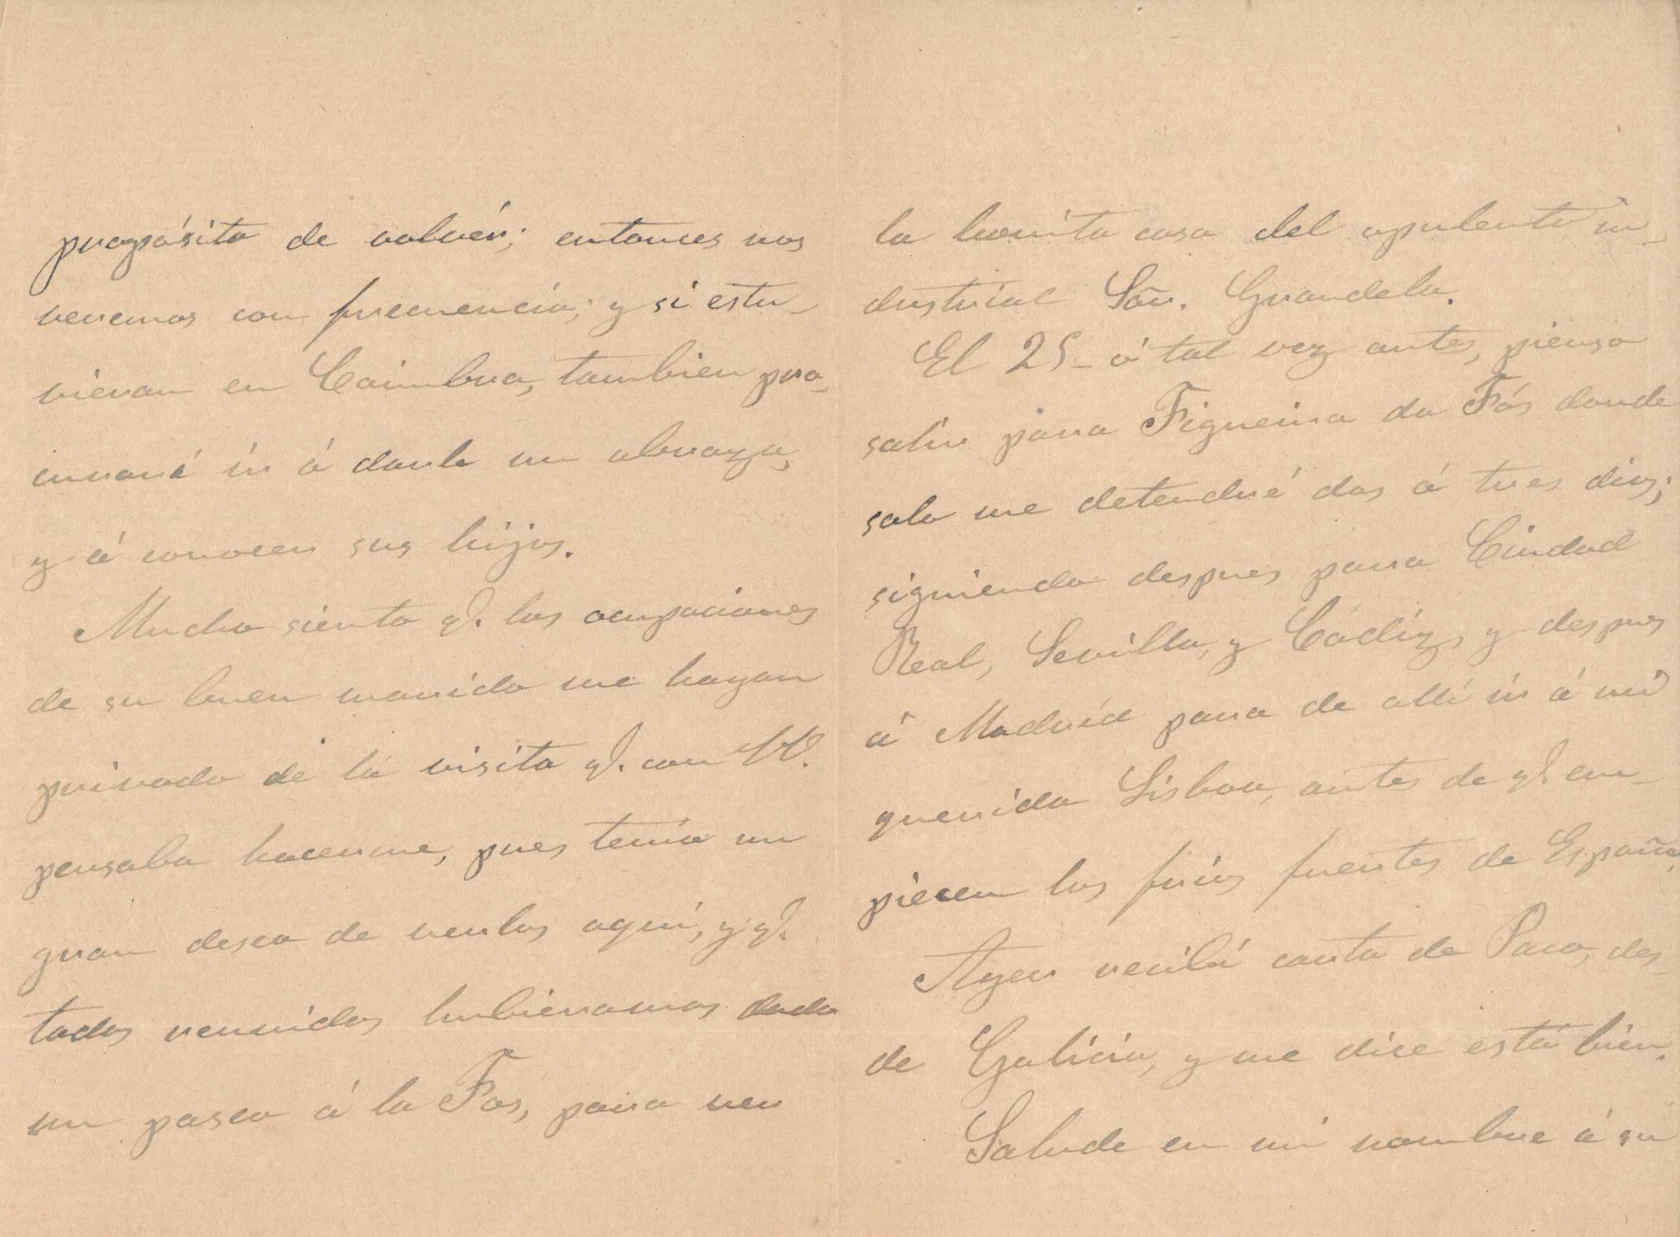 propósito de volvér; entonces nos
veremos con frecuencia; y si estu-
vieran en Coimbra, tambien pro-
curaré ir á darle un abrazo,
y á conocer sus hijos.
Mucho siento q. las ocupaciones
de su buen marido me hayan
privado de la visita q. con VV.
pensaba hacerme, pues tenía un
gran deseo de verlos aquí, y q.
todos reunidos hubieramos dado
un paseo á la Fos, para ver
la bonita casa del opulento in-
dustrial Sõr. Grandela.
El 25 - ó tal vez antes, pienso
salir para Figueira da Fós donde
solo me detendré dos ó tres dias;
siguiendo despues para Ciudad
Real, Sevilla, y Cádiz, y despues
á Madrid para de allí ir á mi
querida Lisboa, antes de q. em-
piecen los fríos fuertes de España.
Ayer recibí carta de Paco, des-
de Galicia, y me dice está bien.
Salude en mi nombre á su